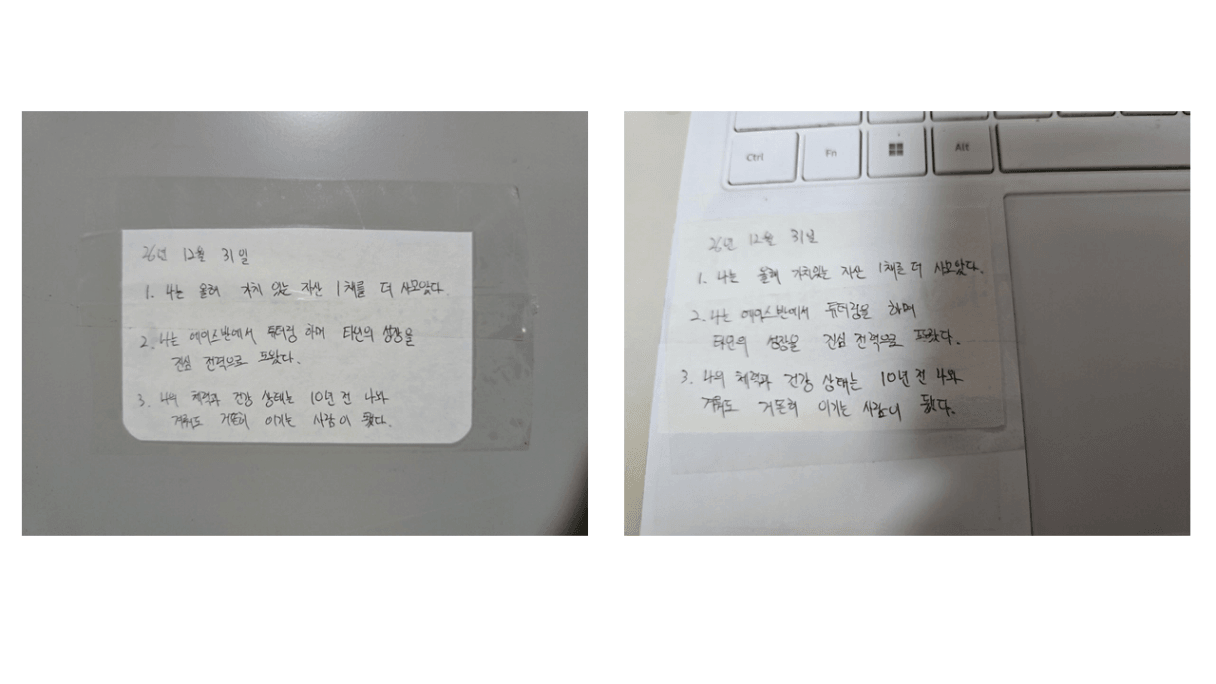 26년 12월 31일
1. 나는 올해 가치 있는 자산 1채를 더 사모았다.
2. 나는 에이스반에서 튜터링 하며 타인의 성장을
진심 전력으로 도왔다.
3. 나의 체력과 건강 상태는 10년 전 나와
겨뤄도 거뜬히 이기는 사람이 됐다.
Ctrl Fn Alt
26년 12월 31일
1. 나는 올해 가치있는 자산 1채를 더 사모았다.
2. 나는 에이스반에서 튜터링을 하며
타인의 성장을 진심 전력으로 도왔다.
3. 나의 체력과 건강 상태는 10년 전 나와
겨뤄도 거뜬히 이기는 사람이 됐다.